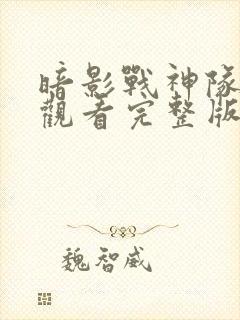 暗影戰神隊
觀看完整版
魏智威